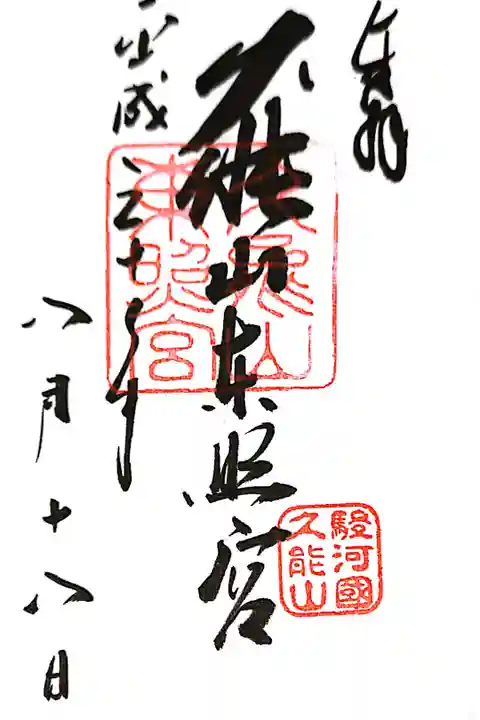 奉拝
久能山東照宮
平成三十年
八月十八日
久能山
東照宮
駿河國
久能山